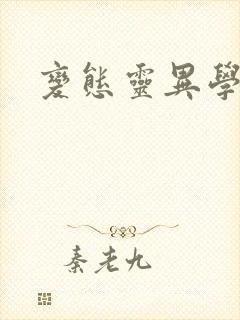 變態靈異學
秦老九